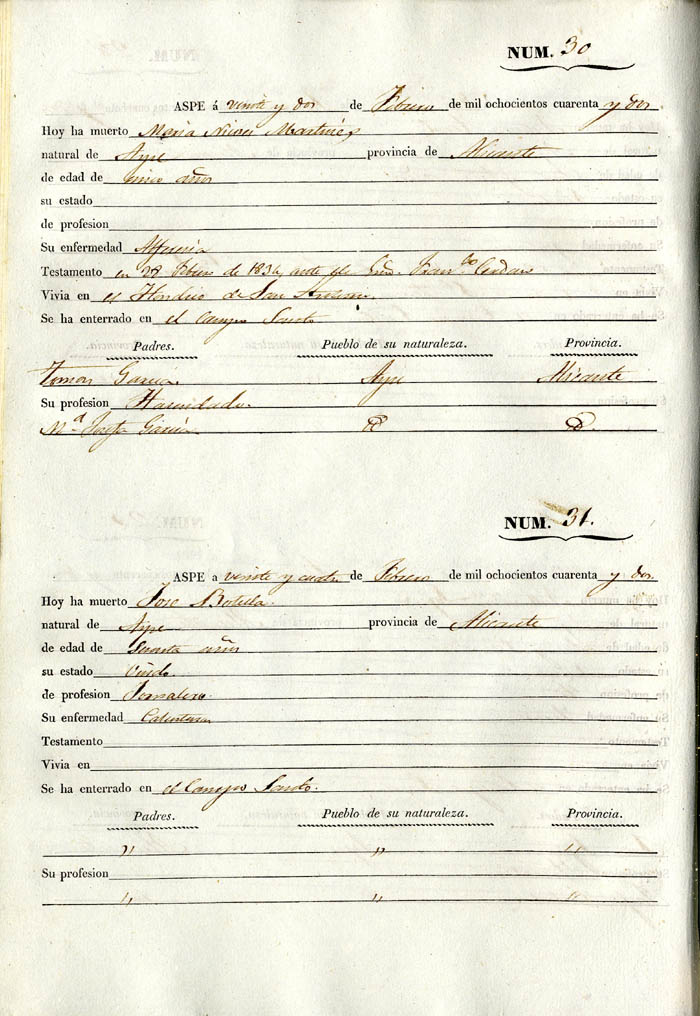 NUM. 30
ASPE á veinte y dos de Febrero de mil ochocientos cuarenta y dos
Hoy ha muerto Maria Nieves Martinez
natural de Aspe provincia de Alicante
de edad de cinco años
su estado
de profesion
Su enfermedad
Testamento en 28 Febrero de 183 ante el Franco
Vivia en el de San
Se ha enterrado en el Campo Santo
Padres. Pueblo de su naturaleza. Provincia.
Tomas Garcia Aspe Alicante
Su profesion Hacendado
Mª Josefa Garcia
NUM. 31.
ASPE a veinte y cuatro de Febrero de mil ochocientos cuarenta y dos.
Hoy ha muerto Jose Botella
natural de Aspe provincia de Alicante
de edad de años
su estado Viudo
de profesion Jornalero
Su enfermedad Calentura
Testamento
Vivia en
Se ha enterrado en el Campo Santo.
Padres. Pueblo de su naturaleza. Provincia.
" " "
Su profesion
" " "